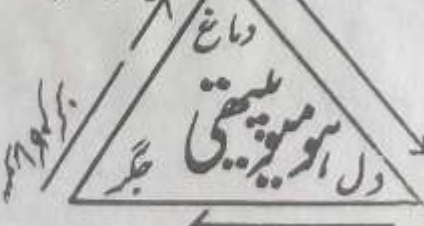 دماغ
ہومیوپیتھی
جگر
دل